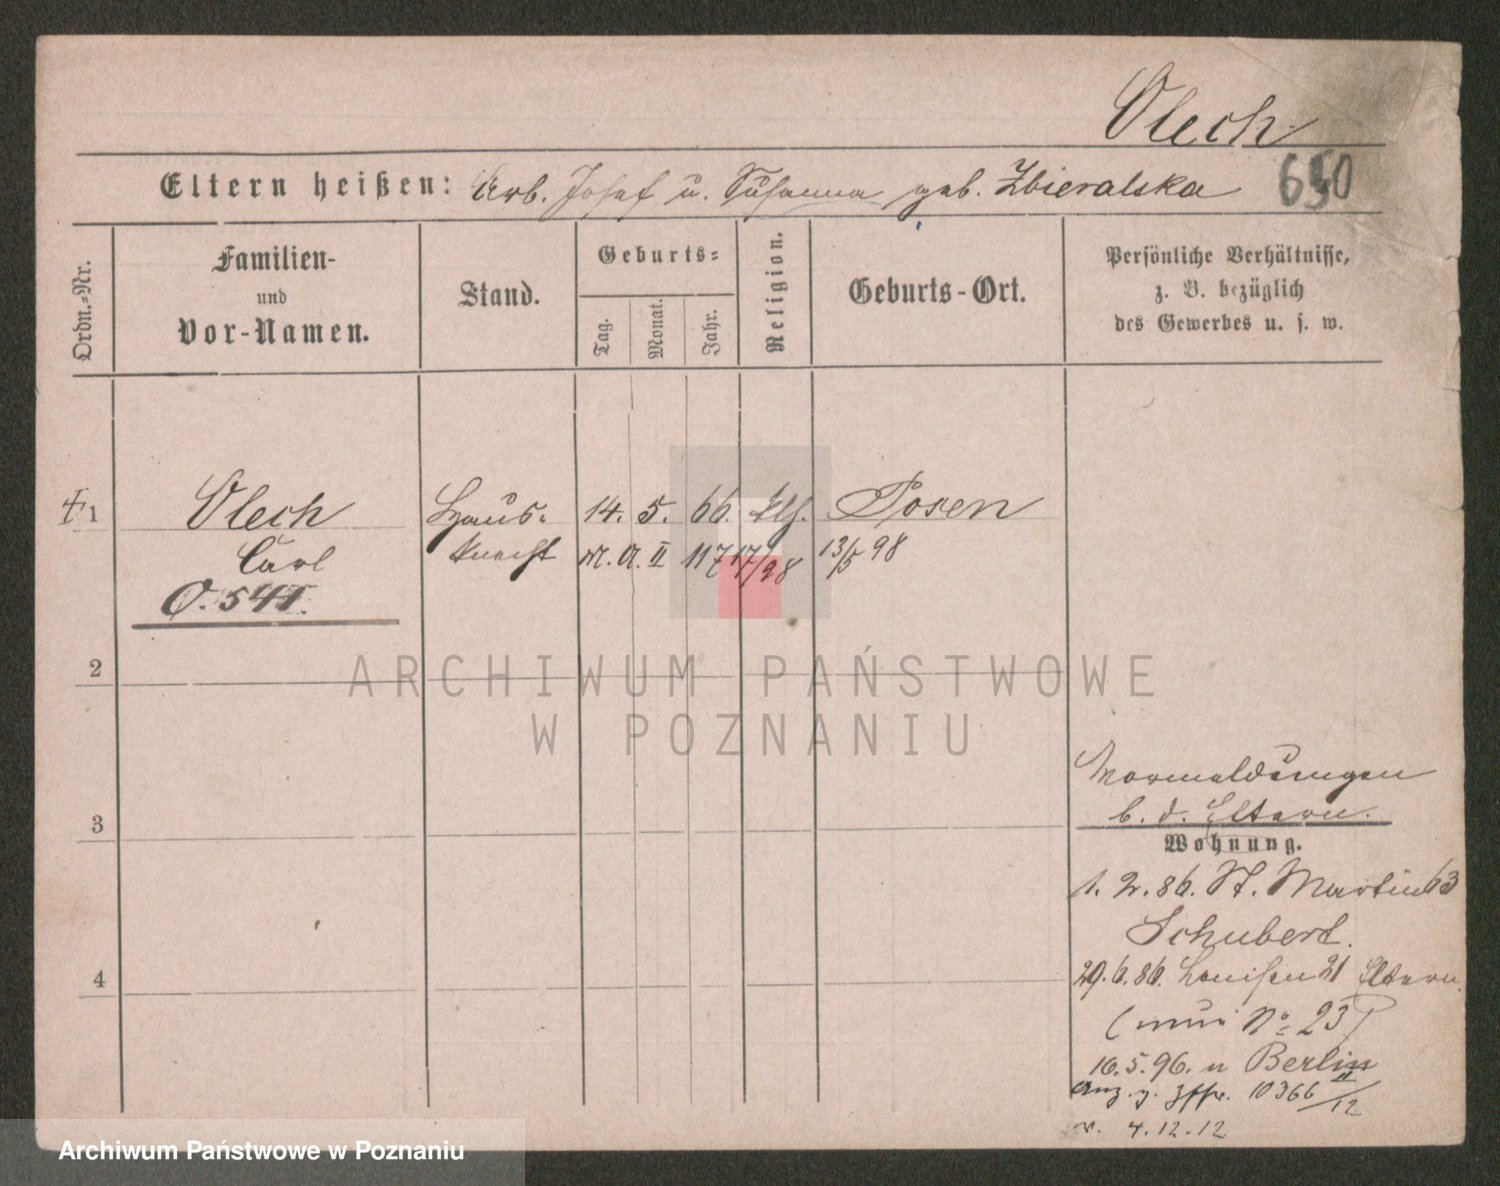 Olech
Eltern heißen: Arb. Josef u. Susanna geb. Zbieralska 650
Ordn.-Nr.
Familien-
und
Vor-Namen.
Stand.
Geburts-
Tag.
Monat.
Jahr.
Religion.
Geburts-Ort.
Persönliche Verhältnisse,
z. B. bezüglich
des Gewerbes u. s. w.
1 Olech Haus- 14. 5. 66. kth. Posen
Carl knecht M. A. II 117 17/9 98 13/5 98
O. 541.
2
ARCHIWUM PAŃSTWOWE
W POZNANIU
3
4
Vormeldungen
b. d. Eltern.
Wohnung.
1. 2. 86. St. Martin 63
Schubert.
29. 6. 86. Louisen 21 Eltern.
(neue No 23)
10. 5. 96. n Berlin
Anz. 10366 II/12
v. 4.12.12
Archiwum Państwowe w Poznaniu